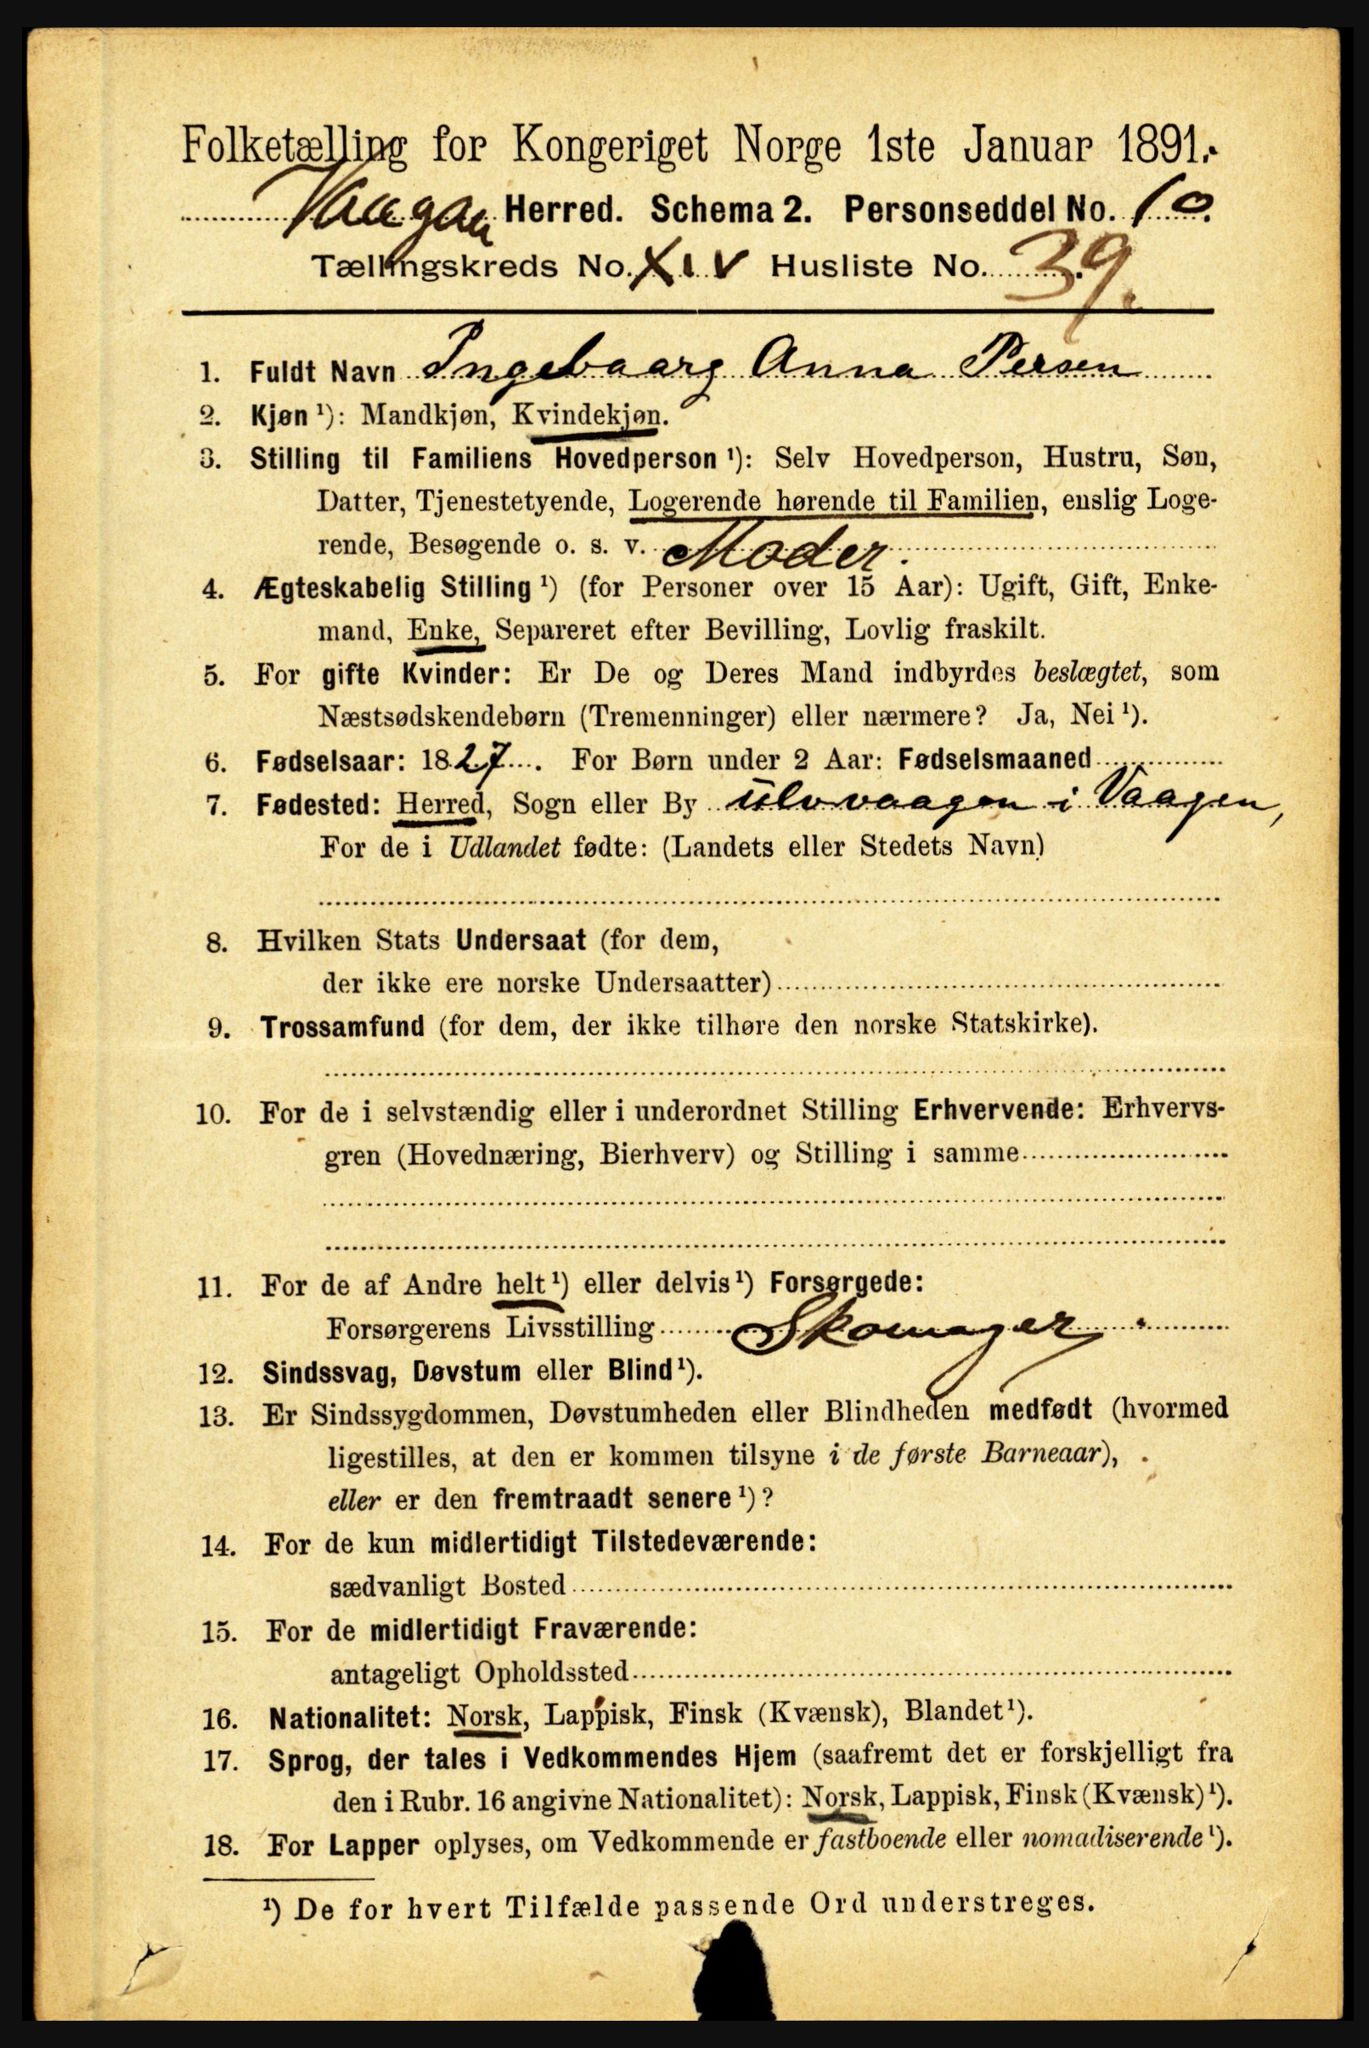 Folketælling for Kongeriget Norge 1ste Januar 1891.
Vaagan Herred. Schema 2. Personseddel No. 10.
Tællingskreds No. XIV Husliste No. 39.
1. Fuldt Navn Ingebaarg Anna Persen
2. Kjøn ¹): Mandkjøn, Kvindekjøn.
3. Stilling til Familiens Hovedperson ¹): Selv Hovedperson, Hustru, Søn,
Datter, Tjenestetyende, Logerende hørende til Familien, enslig Loge-
rende, Besøgende o. s. v. Moder.
4. Ægteskabelig Stilling ¹) (for Personer over 15 Aar): Ugift, Gift, Enke-
mand, Enke, Separeret efter Bevilling, Lovlig fraskilt.
5. For gifte Kvinder: Er De og Deres Mand indbyrdes beslægtet, som
Næstsødskendebørn (Tremenninger) eller nærmere? Ja, Nei ¹).
6. Fødselsaar: 1827. For Børn under 2 Aar: Fødselsmaaned
7. Fødested: Herred, Sogn eller By ulvvaagen i Vaagen,
For de i Udlandet fødte: (Landets eller Stedets Navn)
8. Hvilken Stats Undersaat (for dem,
der ikke ere norske Undersaatter)
9. Trossamfund (for dem, der ikke tilhøre den norske Statskirke).
10. For de i selvstændig eller i underordnet Stilling Erhvervende: Erhvervs-
gren (Hovednæring, Bierhverv) og Stilling i samme
11. For de af Andre helt ¹) eller delvis ¹) Forsørgede:
Forsørgerens Livsstilling Skomager
12. Sindssvag, Døvstum eller Blind ¹).
13. Er Sindssygdommen, Døvstumheden eller Blindheden medfødt (hvormed
ligestilles, at den er kommen tilsyne i de første Barneaar),
eller er den fremtraadt senere ¹)?
14. For de kun midlertidigt Tilstedeværende:
sædvanligt Bosted
15. For de midlertidigt Fraværende:
antageligt Opholdssted
16. Nationalitet: Norsk, Lappisk, Finsk (Kvænsk), Blandet ¹).
17. Sprog, der tales i Vedkommendes Hjem (saafremt det er forskjelligt fra
den i Rubr. 16 angivne Nationalitet): Norsk, Lappisk, Finsk (Kvænsk) ¹).
18. For Lapper oplyses, om Vedkommende er fastboende eller nomadiserende ¹).
¹) De for hvert Tilfælde passende Ord understreges.